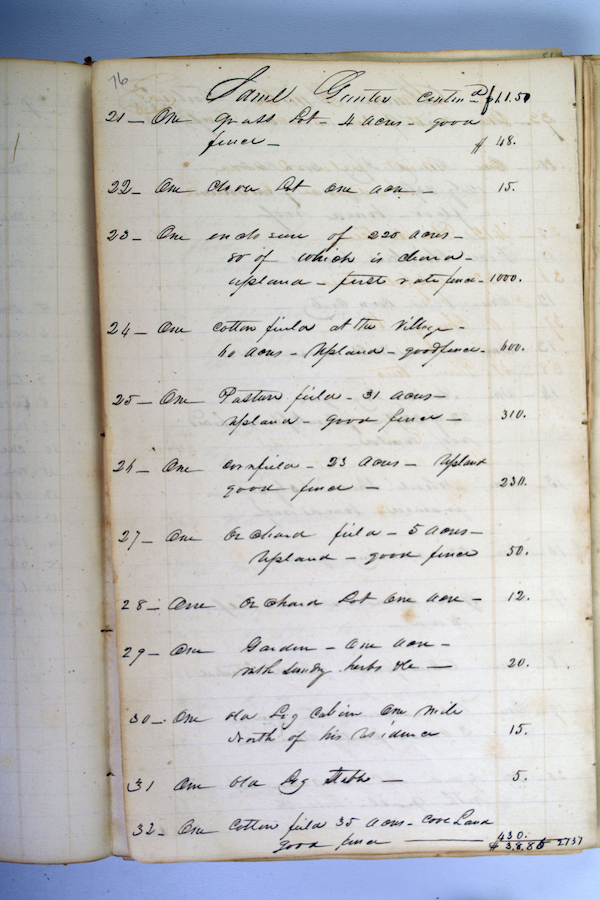 76
Saml. Gunter Contind
21 — One grass Lot – 4 acres – good
fence – $ 48.
22 – One clover Lot one acre – 15.
23 – One enclosure of 220 acres –
80 of which is cleared –
upland – first rate fence – 1000.
24 – One cotton field at the Village –
60 acres – Upland – good fence – 600.
25 – One Pasture field – 31 acres –
upland – good fence – 310.
26 – One cornfield – 23 acres – Upland
good fence – 230.
27 – One Orchard field – 5 acres –
Upland – good fence 50.
28 – One Orchard Lot one acre – 12.
29 – One Garden – one acre –
with sundry herbs &c — 20.
30 – One old Log Cabin one mile
North of his residence 15.
31 One old Log Stable — 5.
32 – One Cotton field 35 acres – cove Land
good fence — 430.
2737